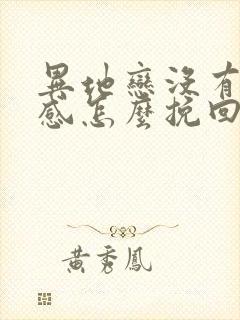 異地戀沒有
感怎麼挽回
黃秀鳳